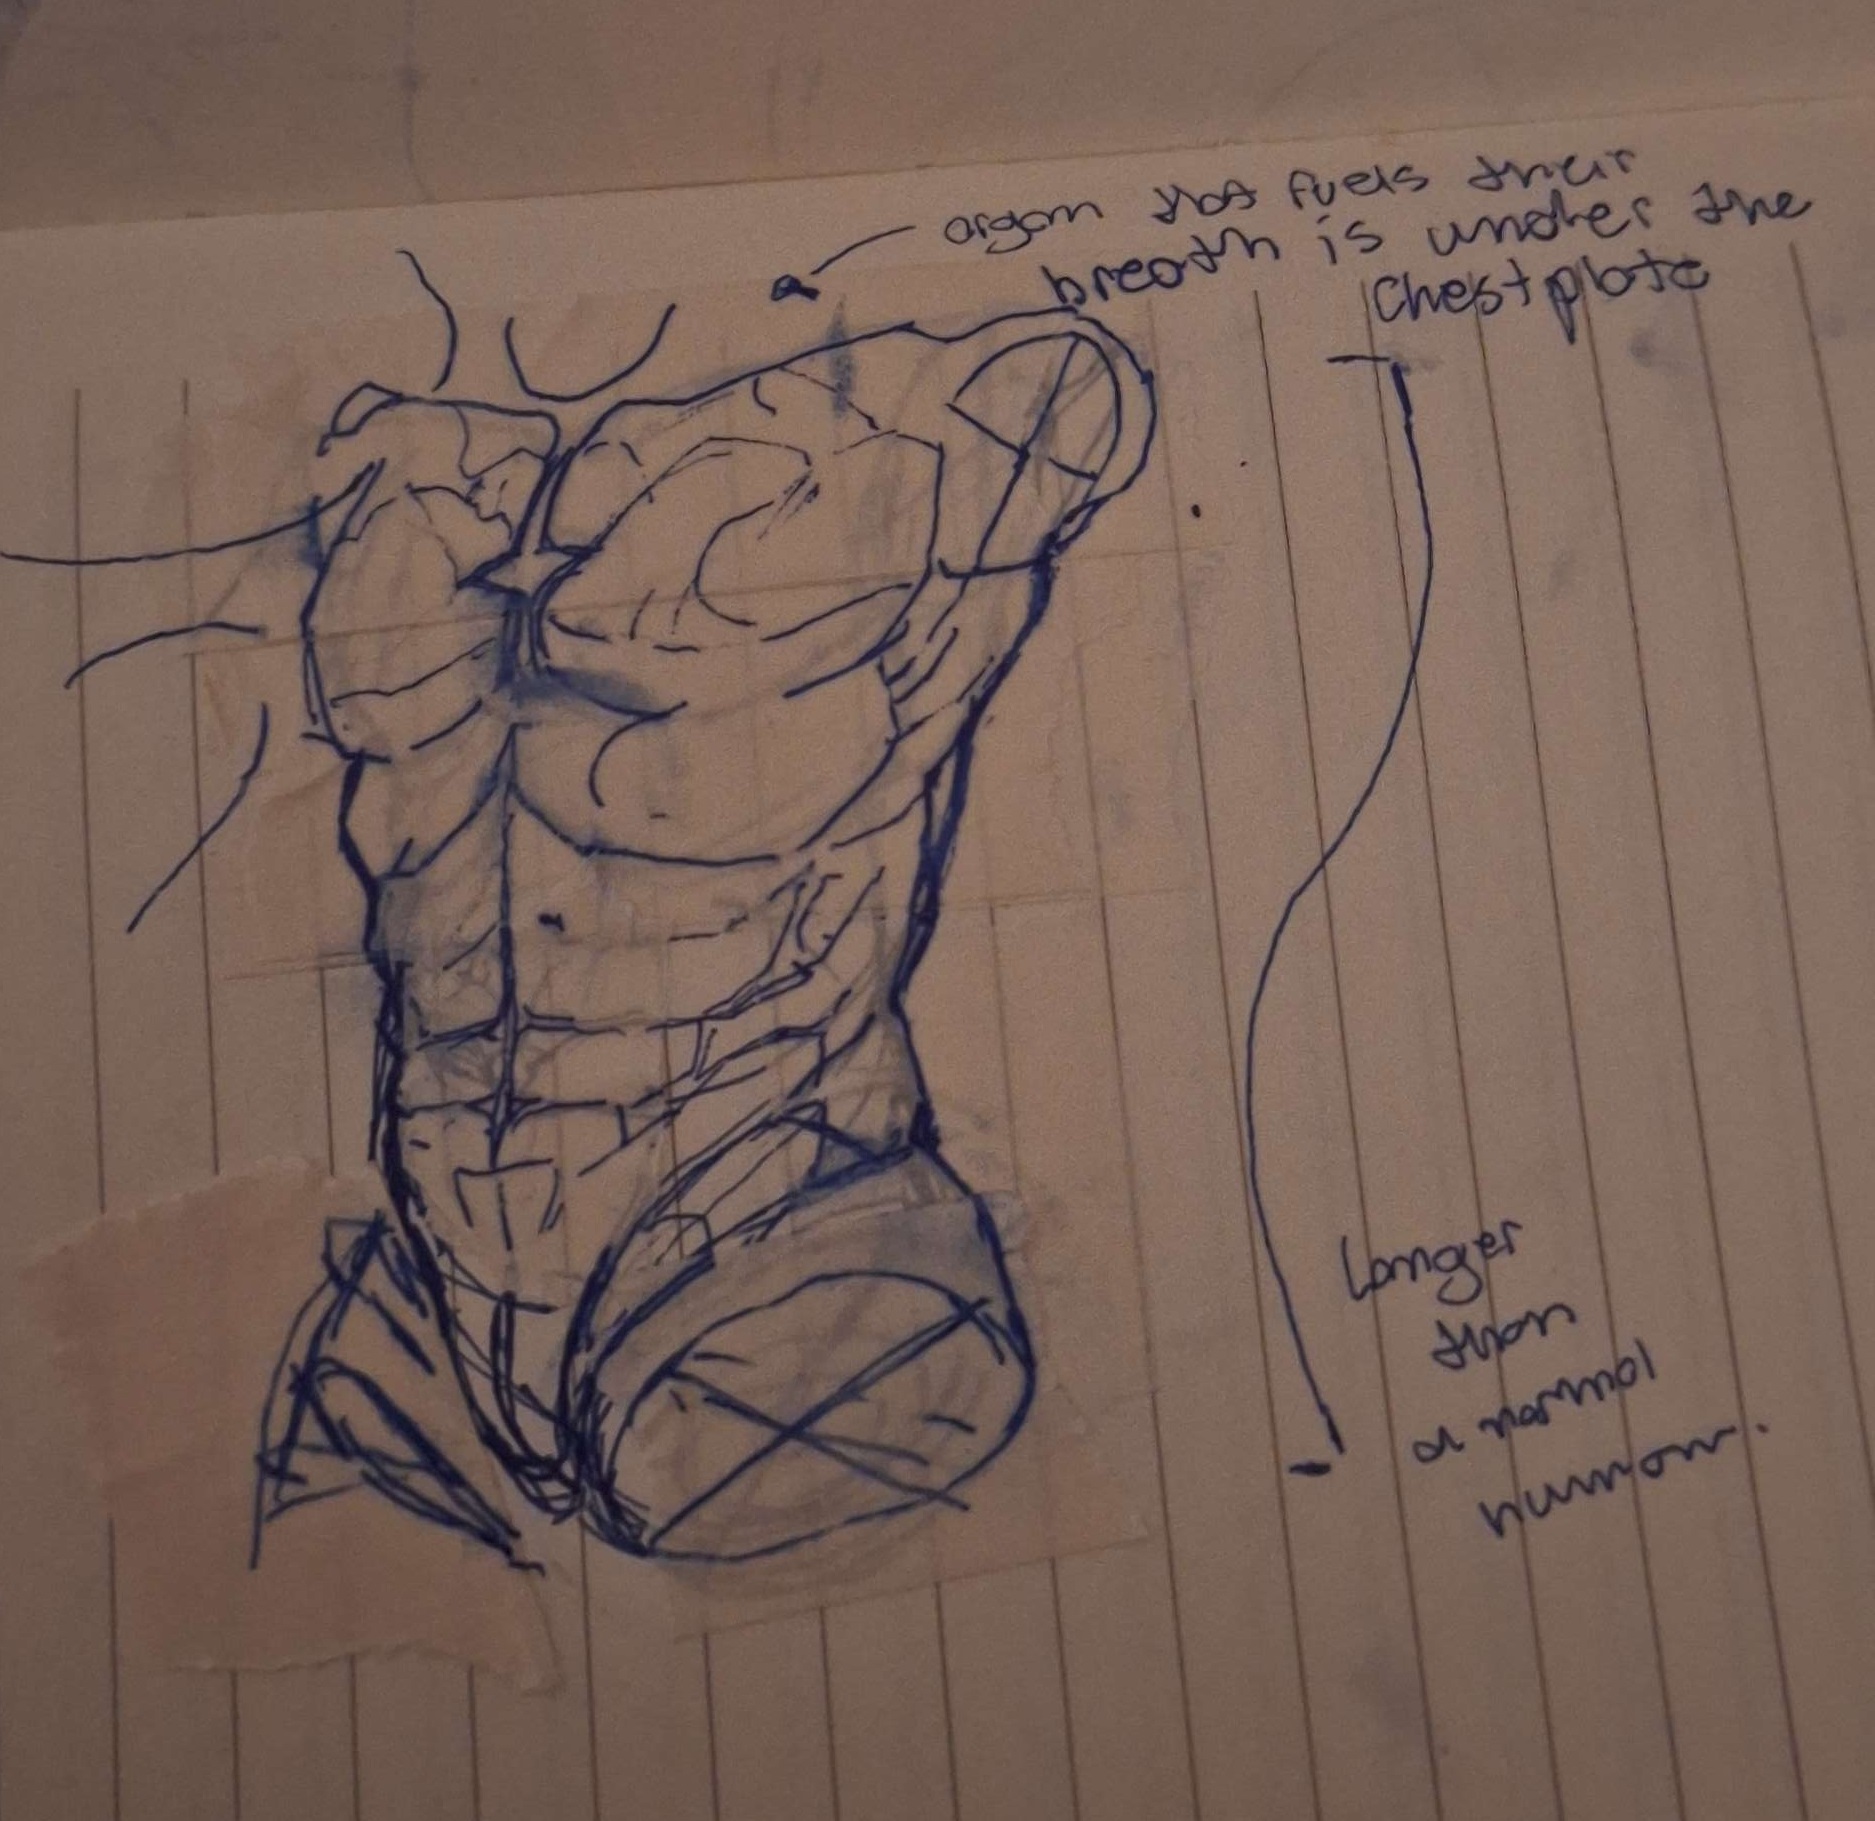 organ that fuels their
breath is under the
Chestplate
Longer
than
a normal
human.